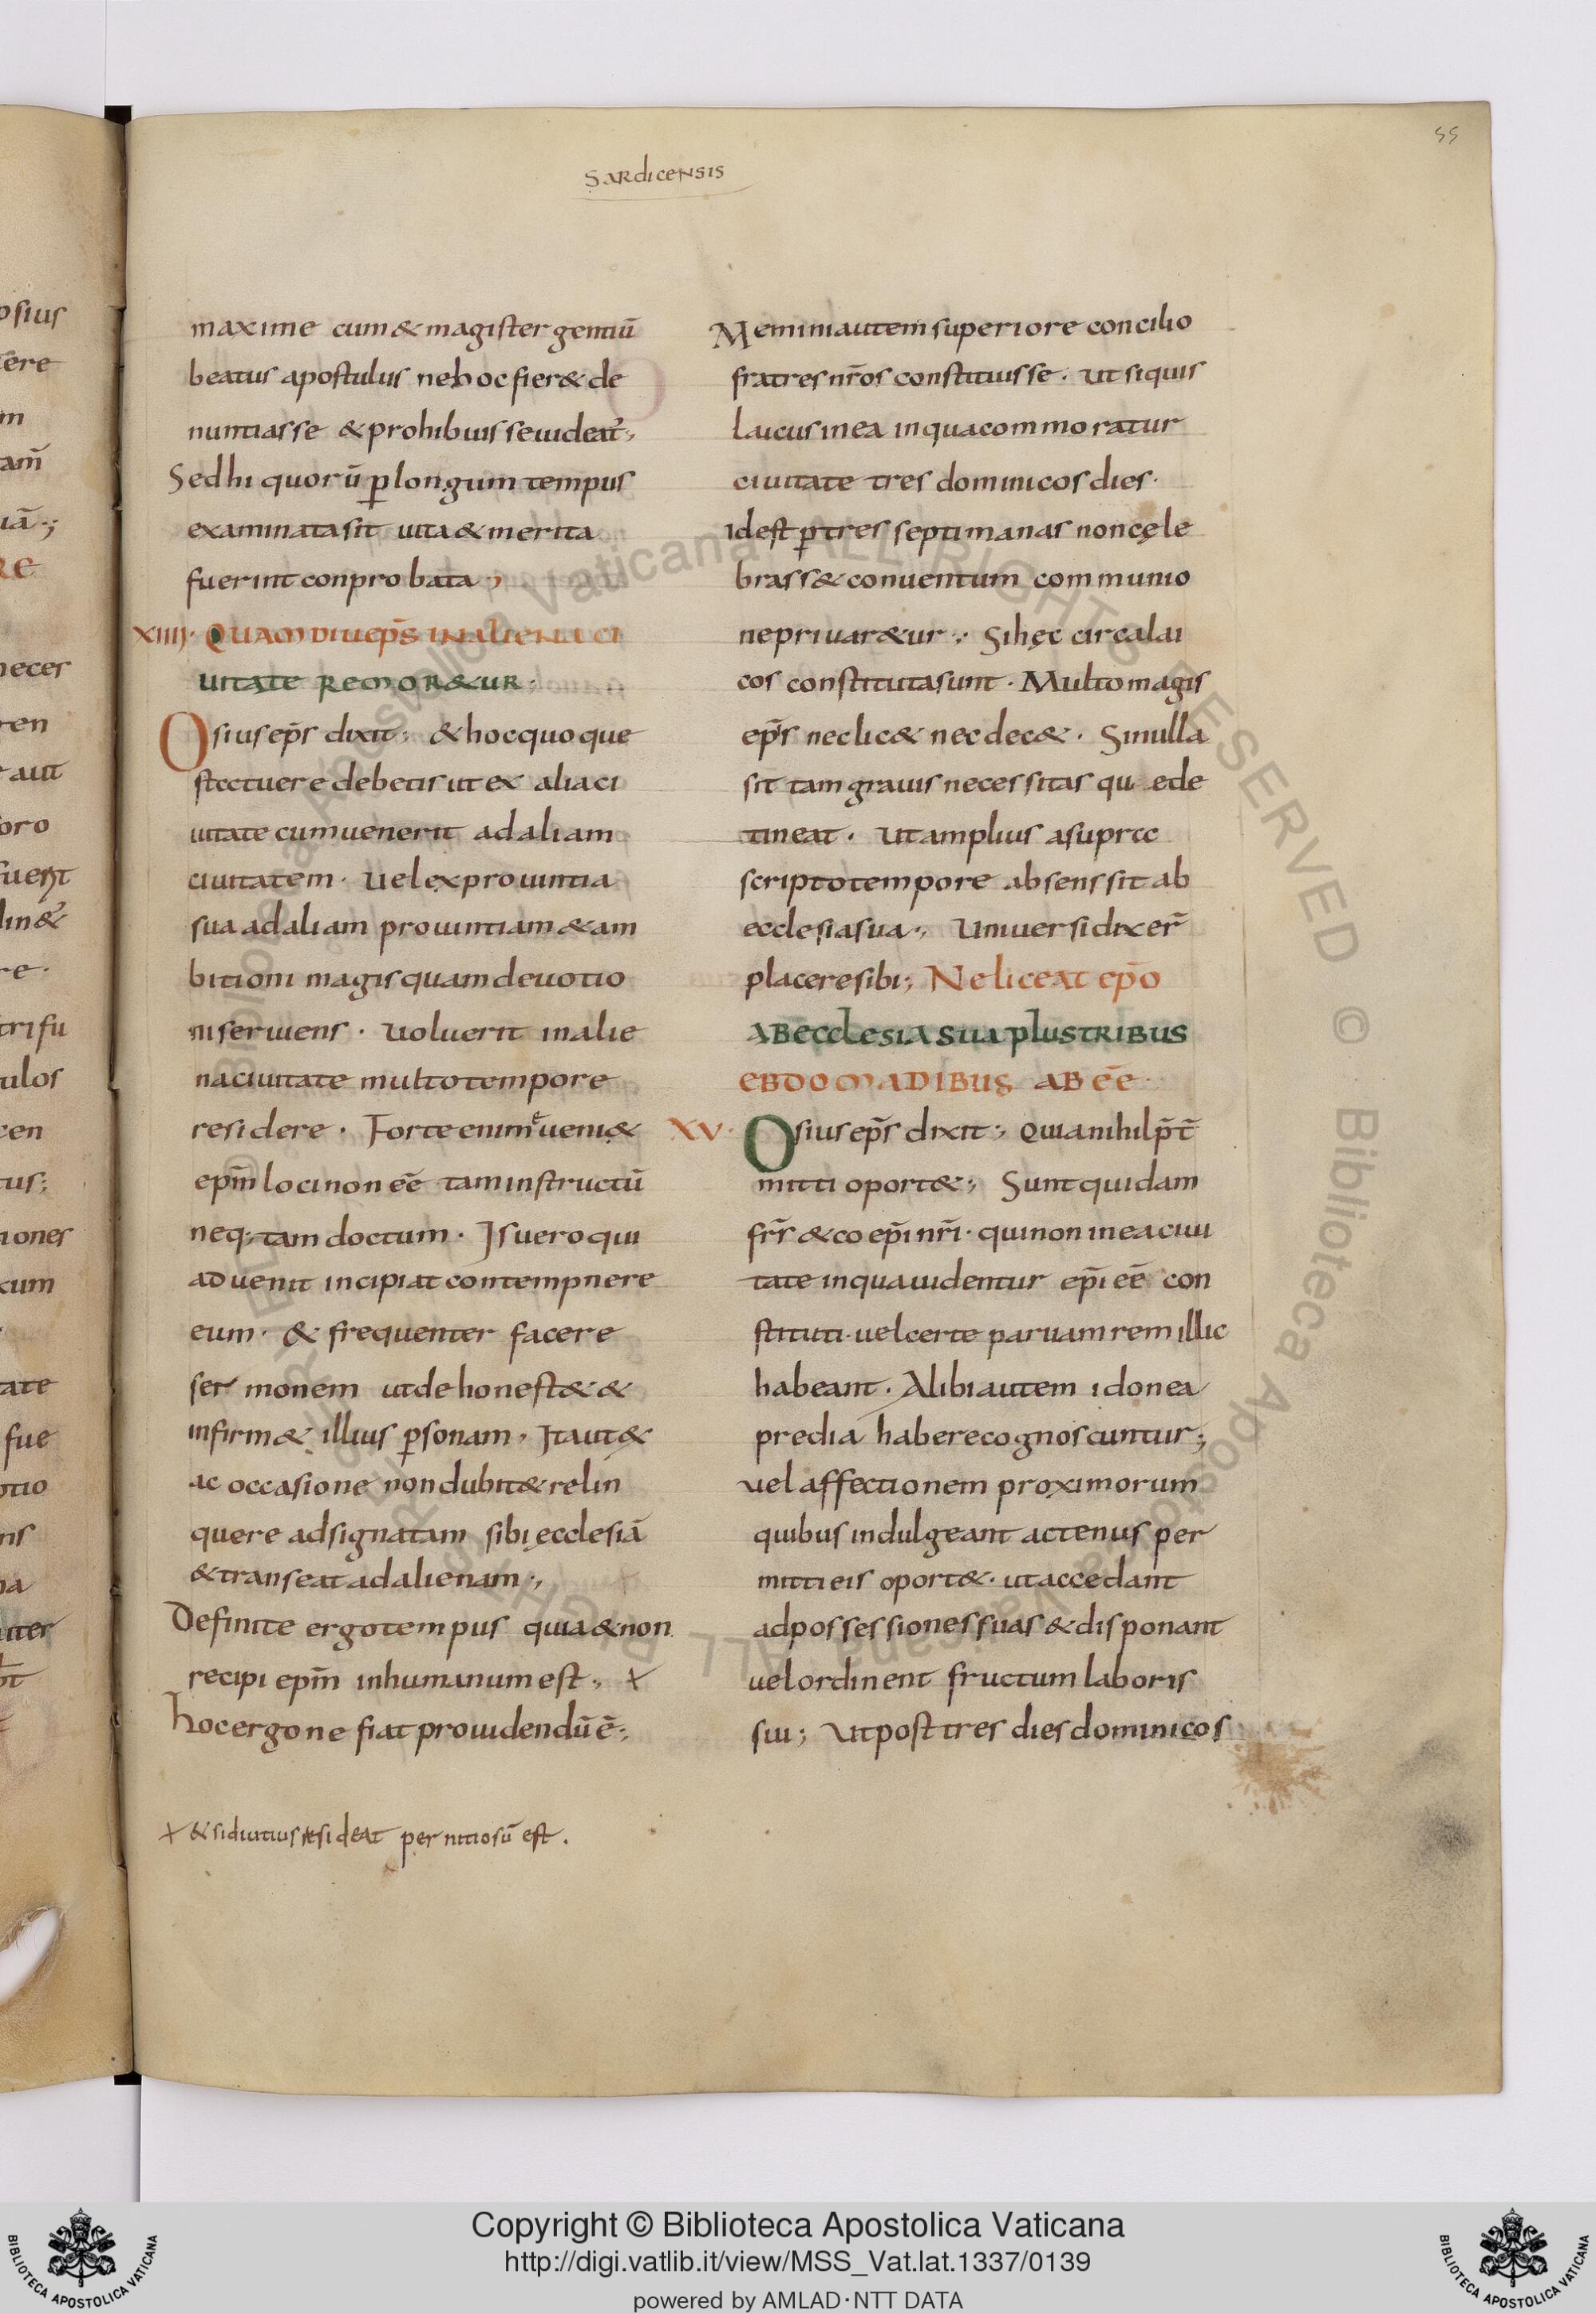 55
Sardicensis
maxime cum & magister gentiū
beatus apostulus ne hoc fier& de
nuntiasse & prohibuisse uideat̄;
Sed hi quorū p̱ longum tempus
examinata sit uita & merita
fuerint conprobata;
XIIII. QUAMDIU EP̄S IN ALIENA CI
UITATE REMOR&UR.
Osius ep̄s dixit; & hoc quoque
statuere debetis ut ex alia ci
uitate cum uenerit ad aliam
ciuitatem. Uel ex prouintia
sua ad aliam prouintiam & am
bitioni magis quam deuotio
ni seruiens. Uoluerit in alie
na ciuitate multo tempore
residere. Forte enim eueni&
ep̄m loci non eē tam instructū
neq; tam doctum. Is uero qui
aduenit incipiat contempnere
eum. & frequenter facere
sermonem ut dehonest& &
infirm& illius p̱sonam. Ita ut &
ac occasione non dubit& relin
quere adsignatam sibi ecclesiā
& transeat ad alienam;
Definite ergo tempus quia & non
recipi ep̄m inhumanum est; +
hoc ergo ne fiat prouidendū ē;
+ & si diutius resideat pernitiosū est.
Memini autem superiore concilio
fratres nr̄os constituisse. Ut si quis
laicus in ea in qua commoratur
ciuitate tres dominicos dies.
id est p̱ tres septimanas non cęle
brass& conuentum communio
ne priuar&ur; Si hęc circa lai
cos constituta sunt. Multo magis
ep̄s nec lic& nec dec&. Si nulla
sit tam grauis necessitas que de
tineat. Ut amplius a supra
scripto tempore absens sit ab
ecclesia sua; Uniuersi dixer̄
placere sibi; Ne liceat ep̄o
AB ECCLESIA SUA PLUS TRIBUS
EBDOMADIBUS AB EĒ.
XV. Osius ep̄s dixit; Quia nihil p̄t̄
mitti oport&; Sunt quidam
fr̄r & coep̄i nr̄i. qui non in ea ciui
tate in qua uidentur ep̄i eē con
stituti. uel certe paruam rem illic
habeant. Alibi autem idonea
predia habere cognoscuntur;
uel affectionem proximorum
quibus indulgeant actenus per
mitti eis oport&. ut accedant
ad possessiones suas & disponant
uel ordinent fructum laboris
sui; Ut post tres dies dominicos
Copyright © Biblioteca Apostolica Vaticana
http://digi.vatlib.it/view/MSS_Vat.lat.1337/0139
powered by AMLAD·NTT DATA
BIBLIOTECA APOSTOLICA VATICANA
BIBLIOTECA APOSTOLICA VATICANA